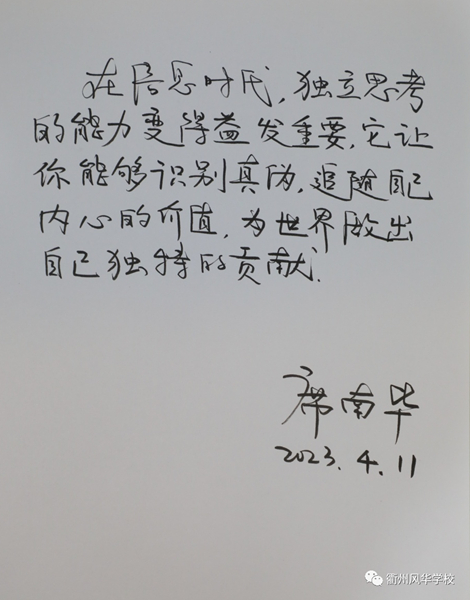 在信息时代，独立思考
的能力变得益发重要，它让
你能够识别真伪，追随自己
内心的价值，为世界做出
自己独特的贡献.
席南华
2023.4.11
衢州风华学校